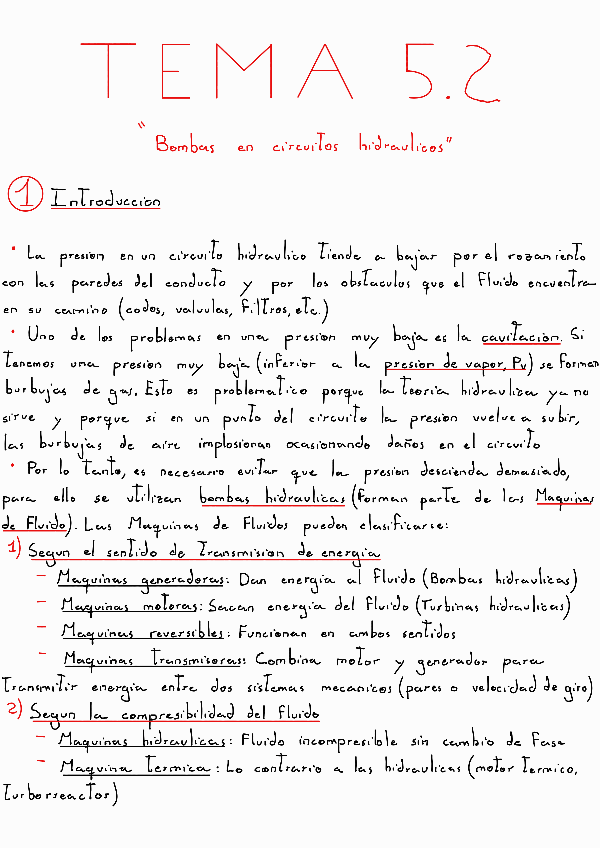 TEMA 5.2
"Bombas en circuitos hidraulicos"
1 Introduccion
· La presion en un circuito hidraulico tiende a bajar por el rozamiento
con las paredes del conducto y por los obstaculos que el fluido encuentra
en su camino (codos, valvulas, filtros, etc.)
· Uno de los problemas en una presion muy baja es la cavitacion. Si
tenemos una presion muy baja (inferior a la presion de vapor, Pv) se forman
burbujas de gas. Esto es problematico porque la teoria hidrauliza ya no
sirve y porque si en un punto del circuito la presion vuelve a subir,
las burbujas de aire implosionan ocasionando daños en el circuito
· Por lo tanto, es necesario evitar que la presion descienda demasiado,
para ello se utilizan bombas hidraulicas (forman parte de las Maquinas
de Fluido). Las Maquinas de Fluidos pueden clasificarse:
1) Segun el sentido de Transmision de energia
- Maquinas generadoras: Dan energia al fluido (Bombas hidraulicas)
- Maquinas motoras: Sacan energia del fluido (Turbinas hidraulicas)
- Maquinas reversibles: Funcionan en ambos sentidos
- Maquinas transmisoras: Combina motor y generador para
transmitir energia entre dos sistemas mecanicos (pares o velocidad de giro)
2) Segun la compresibilidad del fluido
- Maquinas hidraulicas: Fluido incompresible sin cambio de fase
- Maquina termica: Lo contrario a las hidraulicas (motor termico,
turborseactos)